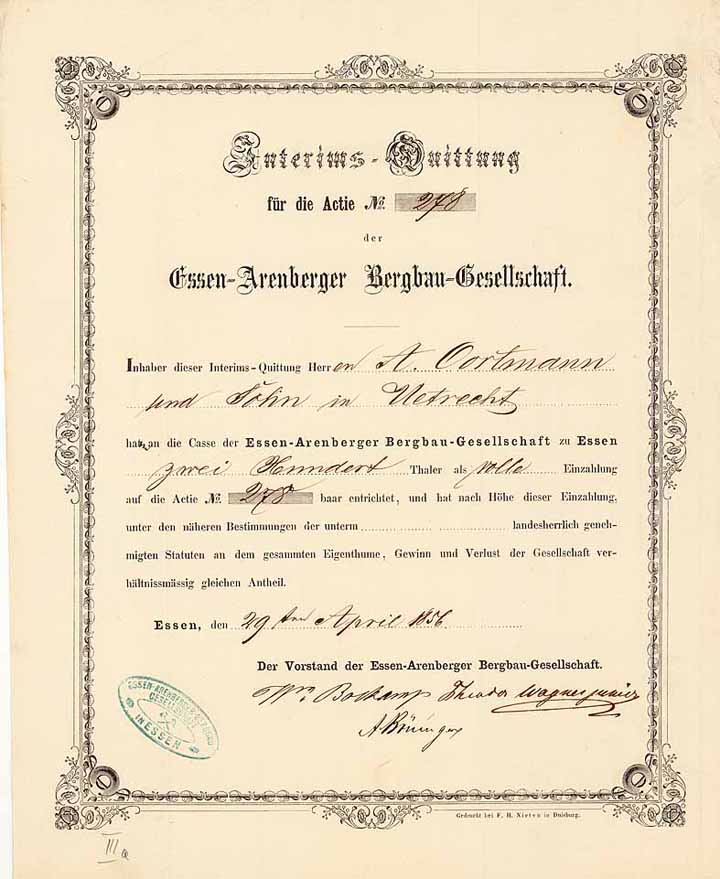 Interims-Quittung
für die Actie No. 278
der
Essen-Arenberger Bergbau-Gesellschaft.
Inhaber dieser Interims-Quittung Herren A. Oortmann
und Sohn in Uetrecht
hat an die Casse der Essen-Arenberger Bergbau-Gesellschaft zu Essen
zwei Hundert Thaler als volle Einzahlung
auf die Actie No. 278 baar entrichtet, und hat nach Höhe dieser Einzahlung,
unter den näheren Bestimmungen der unterm landesherrlich geneh-
migten Statuten an dem gesammten Eigenthume, Gewinn und Verlust der Gesellschaft ver-
hältnissmässig gleichen Antheil.
Essen, den 29ten April 1856
Der Vorstand der Essen-Arenberger Bergbau-Gesellschaft.
Wm Bockamp Theodor Wagner junior
ESSEN-ARENBERGER BERGBAU
GESELLSCHAFT
IN ESSEN
Gedruckt bei F. H. Nieten in Duisburg.
III a